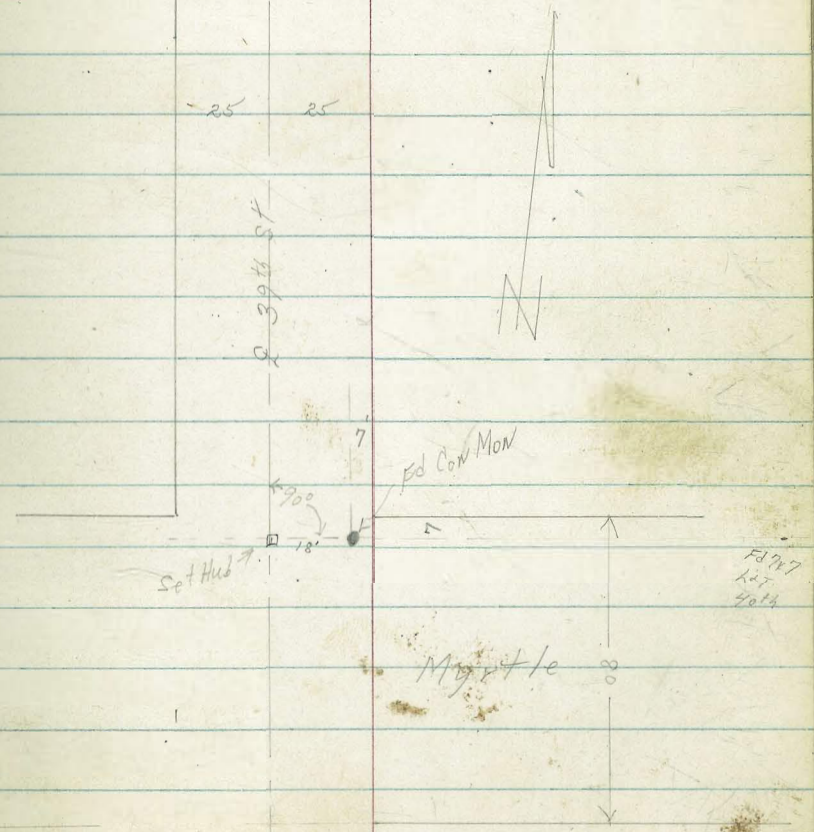 25 25
℄ 39th St
N
7'
Fd Con Mon
90°
7
18'
Set Hub
Fd 7x7
L&T
40th
Myrtle
80